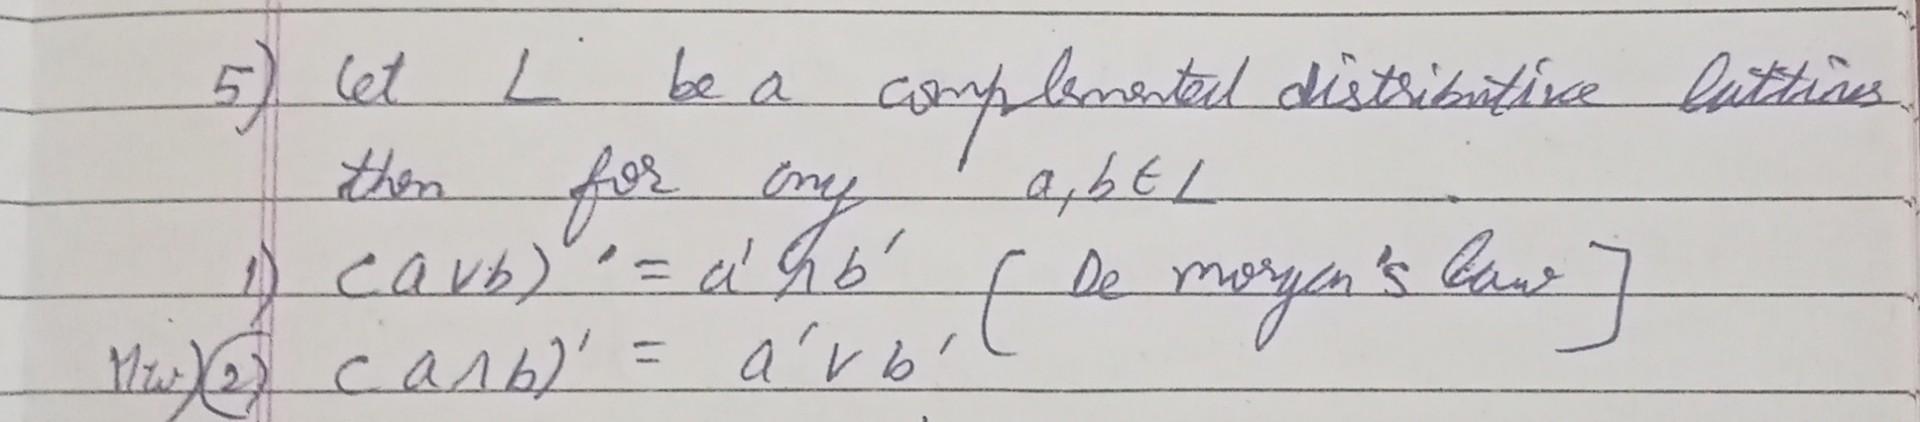 5) Let L be a complemented distributive lattices
then for any a, b ∈ L
1) (a ∨ b)' = a' ∧ b' [De morgan's law]
H.w) 2) (a ∧ b)' = a' ∨ b'